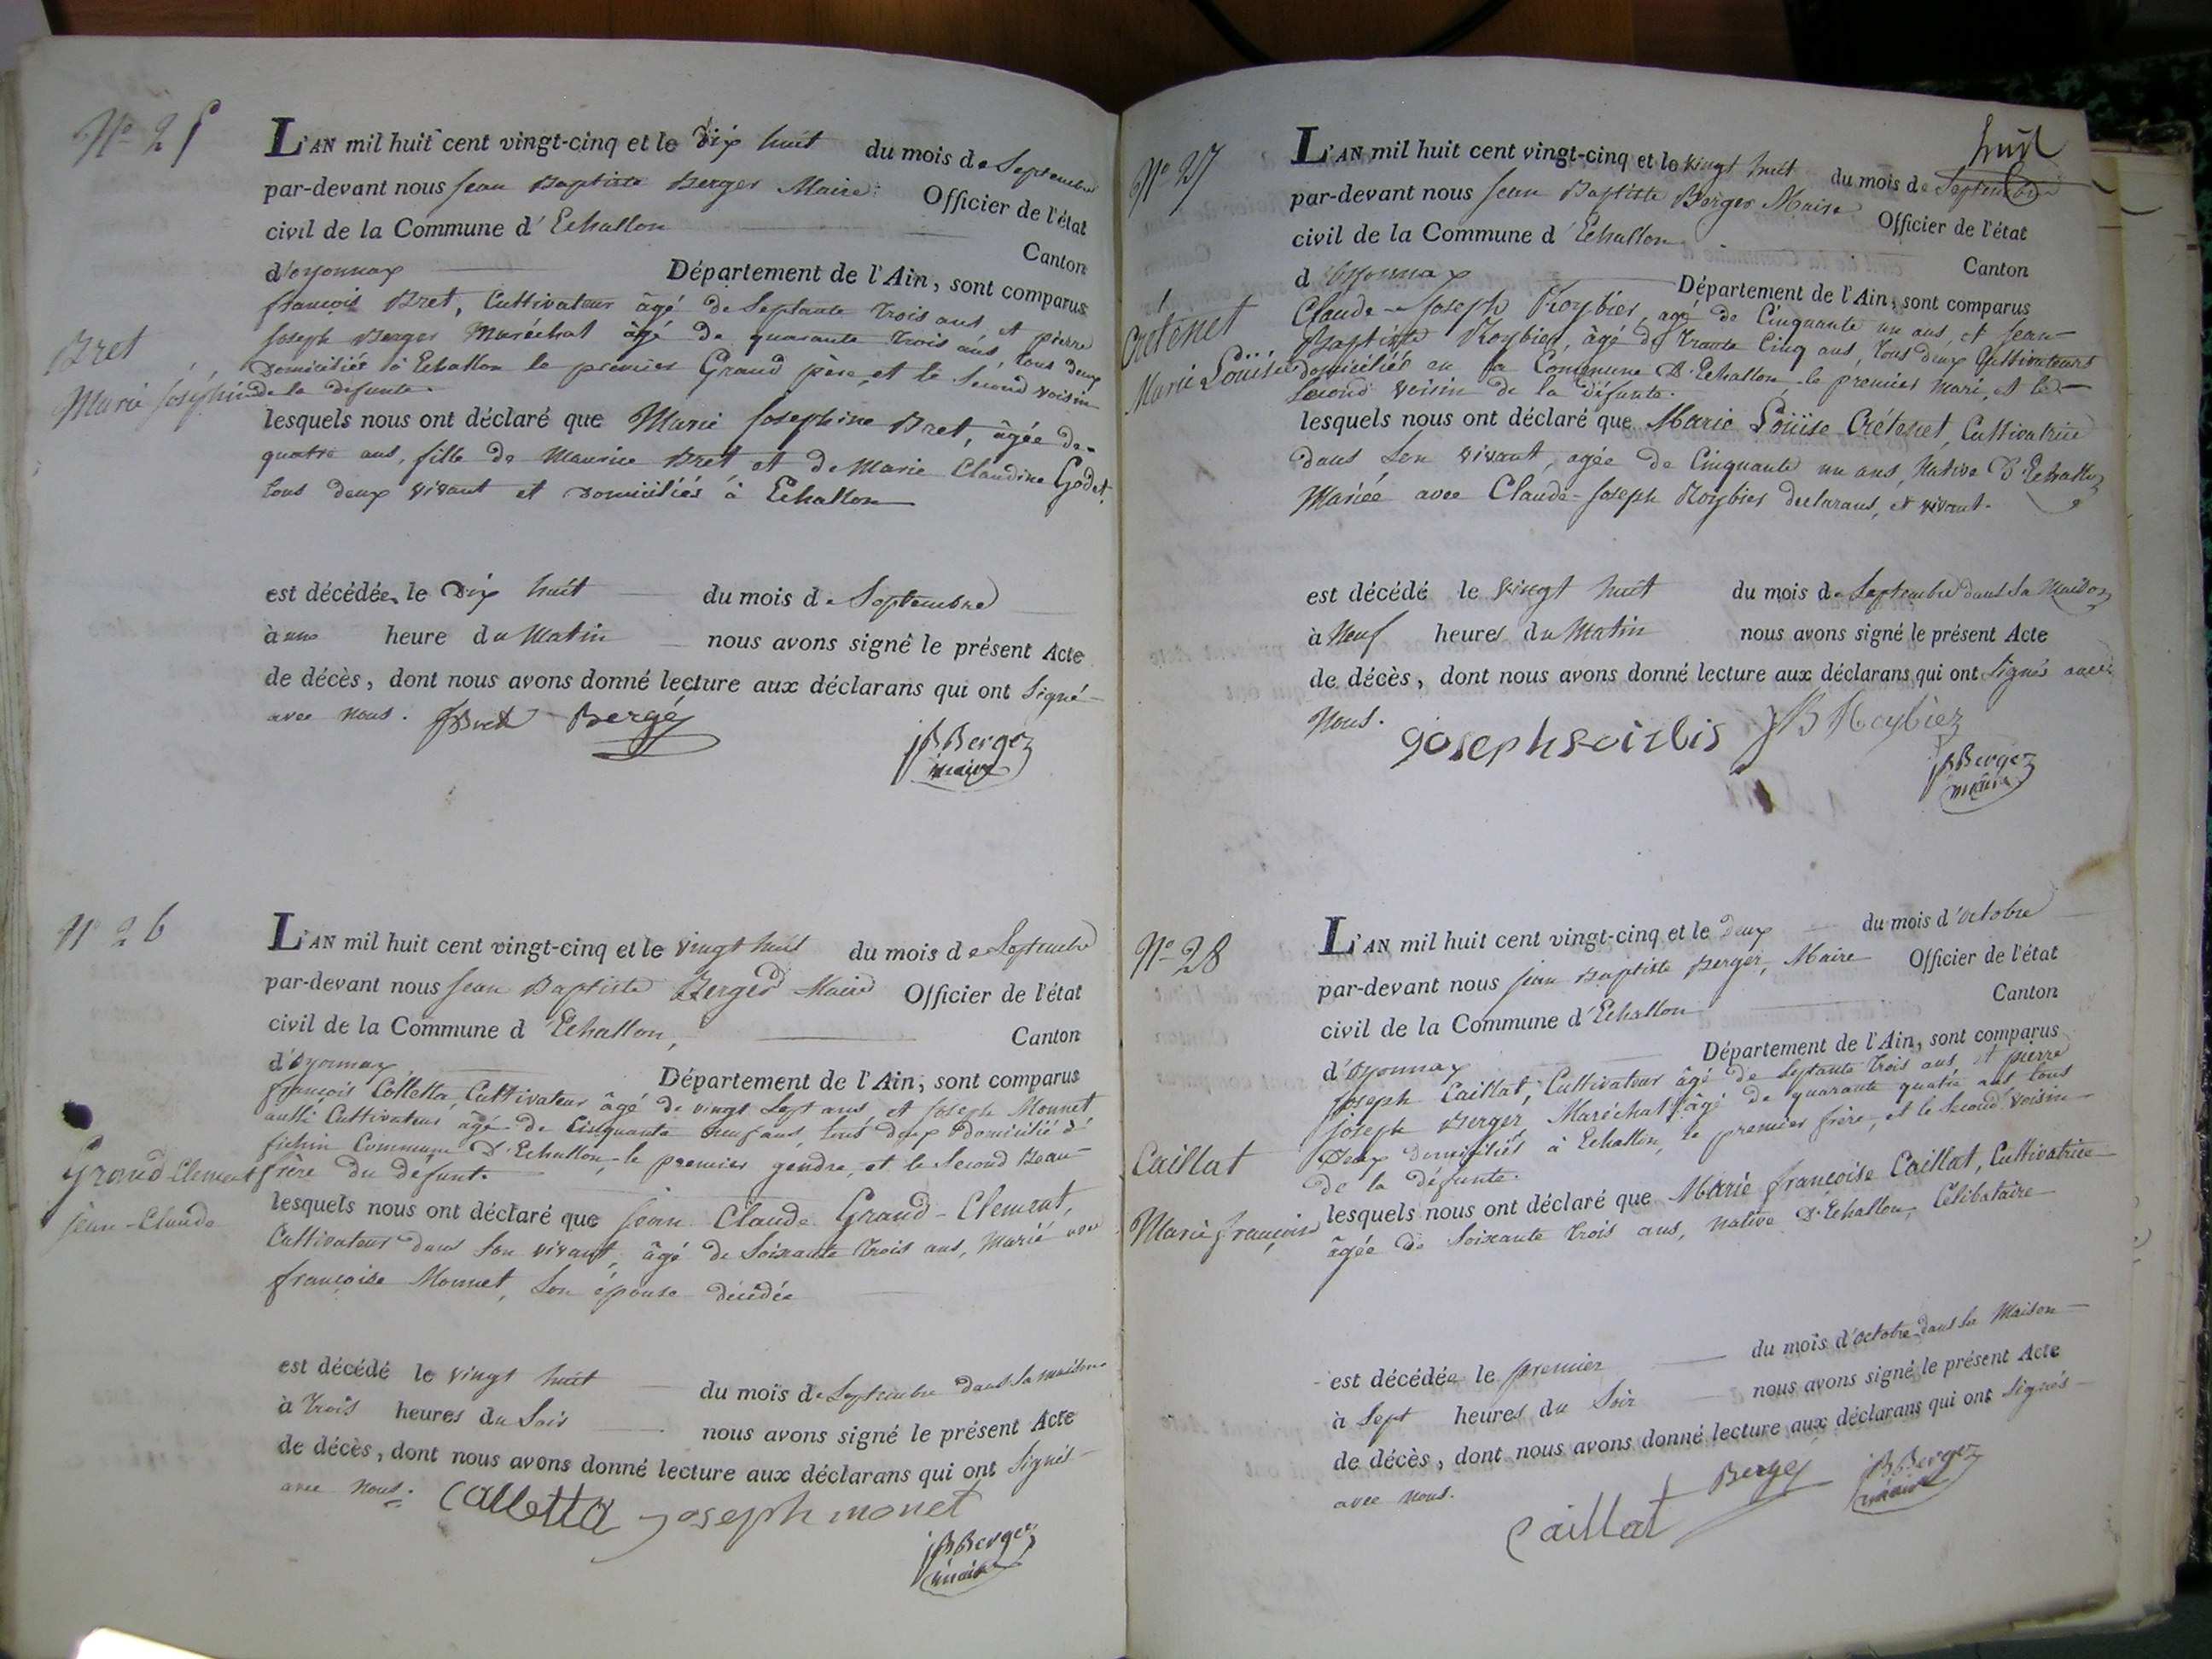 No 25
L'AN mil huit cent vingt-cinq et le dix huit du mois de Septembre
par-devant nous Jean Baptiste Berger Maire Officier de l'état
civil de la Commune d'Echallon Canton
d'oyonnax Département de l'Ain, sont comparus
françois Bret, Cultivateur âgé de Septante trois ans, et pierre
Joseph Berger Maréchal âgé de quarante trois ans, tous deux
Domiciliés à Echallon le premier Grand père, et le Second voisin
de la défunte.
Bret
Marie Joséphine
lesquels nous ont déclaré que Marie Josephine Bret, âgée de
quatre ans, fille de Maurice Bret et de Marie Claudine Godet
tous deux vivant et domiciliés à Echallon
est décédée le Dix huit du mois de Septembre
à une heure du Matin nous avons signé le présent Acte
de décès, dont nous avons donné lecture aux déclarans qui ont Signé
avec nous. fBret Bergé
JB Berger
maire
No 26
L'AN mil huit cent vingt-cinq et le vingt huit du mois de Septembre
par-devant nous Jean Baptiste Berger Maire Officier de l'état
civil de la Commune d'Echallon, Canton
d'Oyonnax Département de l'Ain, sont comparus
françois Colletta, Cultivateur âgé de vingt Sept ans, et Joseph Monnet
aussi Cultivateur âgé de Cinquante neuf ans, tous deux Domicilié à
fichin Commune d'Echallon, le premier gendre, et le Second Beau-
frère du défunt.
Grand-Clement
jean-Claude
lesquels nous ont déclaré que jean Claude Grand-Clement,
Cultivateur dans Son vivant, âgé de Soixante trois ans, Marié avec
françoise Monnet, Son épouse décédée
est décédé le vingt huit du mois de Septembre dans Sa maison
à trois heures du Soir nous avons signé le présent Acte
de décès, dont nous avons donné lecture aux déclarans qui ont Signés
avec nous. Calletta joseph monet
JB Berger
maire
huit
No 27
L'AN mil huit cent vingt-cinq et le vingt huit du mois de Septembre
par-devant nous Jean Baptiste Berger Maire Officier de l'état
civil de la Commune d'Echallon Canton
d'Oyonnax Département de l'Ain, sont comparus
Claude-Joseph Roybier, agé de Cinquante un ans, et Jean-
Baptiste Roybier, âgé de trante Cinq ans, tous deux Cultivateurs
domiciliés en la Commune d'Echallon le premier Mari, et le
Second voisin de la défunte.
Crétenet
Marie Louise
lesquels nous ont déclaré que Marie Loüise Crétenet, Cultivatrice
dans Son vivant, agée de Cinquante un ans, Native d'Echallon
Mariée avec Claude-Joseph Roybier declarant, et vivant.
est décédé le vingt huit du mois de Septembre dans Sa Maison
à Neuf heures du Matin nous avons signé le présent Acte
de décès, dont nous avons donné lecture aux déclarans qui ont Signés avec
Nous. joseph roibis JB Roybiez
JB Berger
maire
No 28
L'AN mil huit cent vingt-cinq et le deux du mois d'octobre
par-devant nous jean Baptiste Berger, Maire Officier de l'état
civil de la Commune d'Echallon Canton
d'Oyonnax Département de l'Ain, sont comparus
Joseph Caillat, Cultivateur âgé de Septante trois ans, et pierre
joseph Berger, Maréchal, âgé de quarante quatre ans tous
Deux domiciliés à Echallon, le premier frère, et le Second voisin
de la défunte.
Caillat
Marie françoise
lesquels nous ont déclaré que Marie françoise Caillat, Cultivatrice
âgée de Soixante trois ans, native d'Echallon, Célibataire
est décédée le premier du mois d'octobre dans Sa Maison
à Sept heures du Soir nous avons signé le présent Acte
de décès, dont nous avons donné lecture aux déclarans qui ont Signés
avec nous.
Caillat Bergé JB Berger
maire